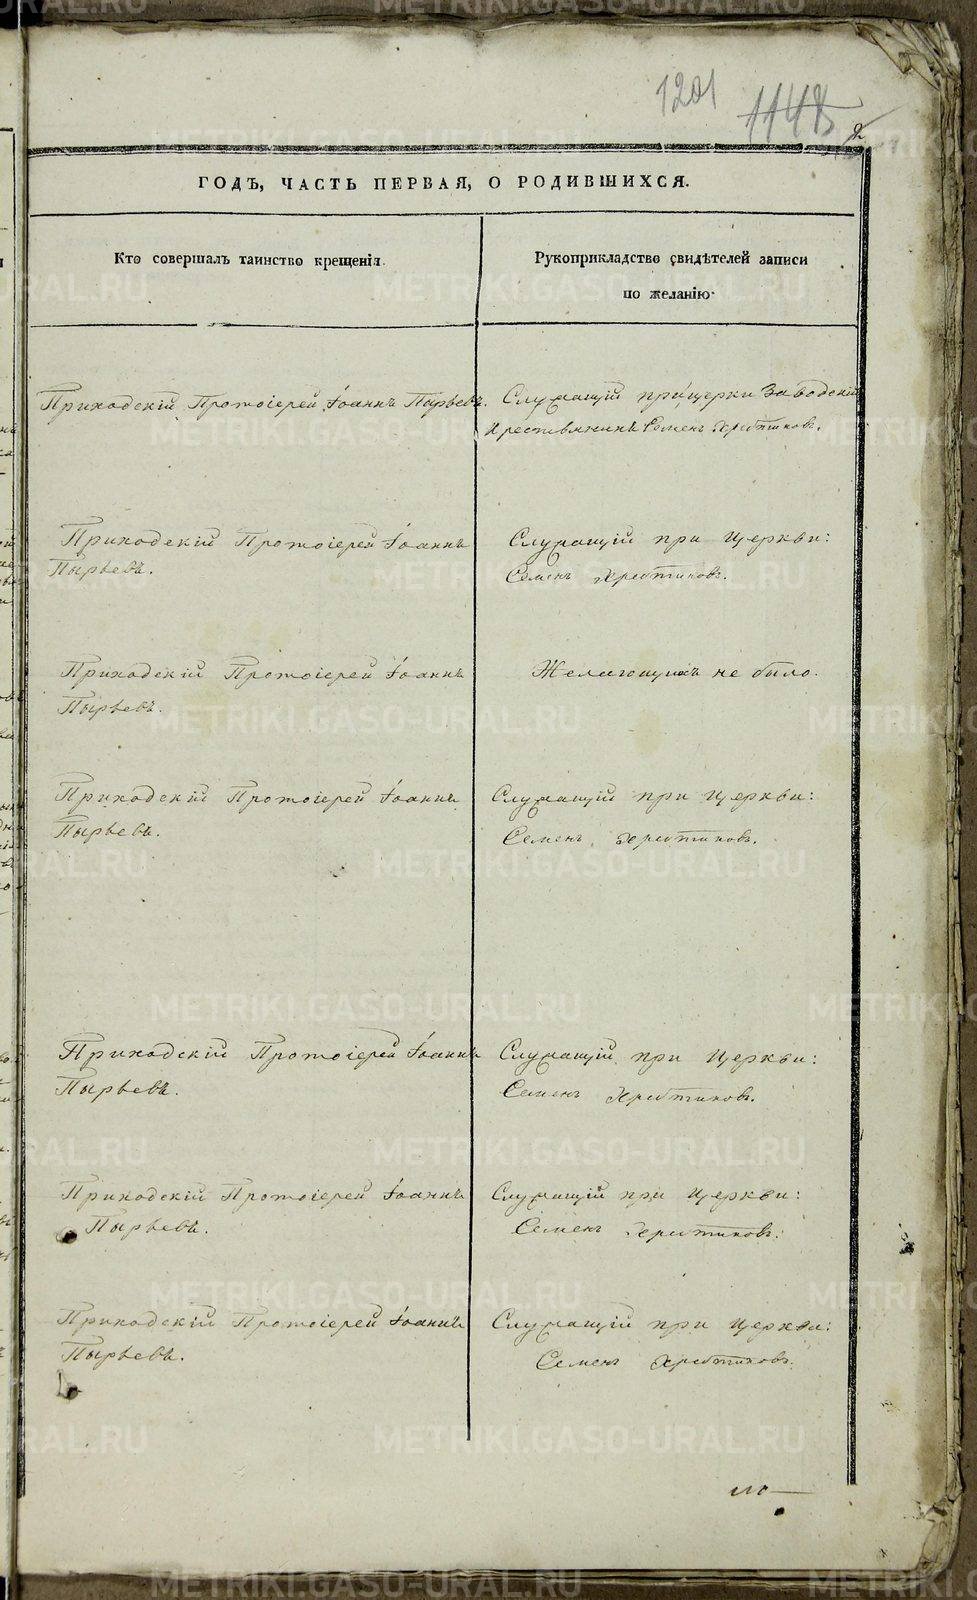 1201
1148
2
ГОДЪ, ЧАСТЬ ПЕРВАЯ, О РОДИВШИХСЯ.
Кто совершалъ таинство крещенія.
Рукоприкладство свидѣтелей записи
по желанію.
Приходскій Протоіерей Іоаннъ Пырьевъ.
Служащій при церкви Заводскій
крестьянинъ Семенъ Хребтиковъ.
Приходскій Протоіерей Іоаннъ
Пырьевъ.
Служащій при Церкви:
Семенъ Хребтиковъ.
Приходскій Протоіерей Іоаннъ
Пырьевъ.
Желающихъ не было.
Приходскій Протоіерей Іоаннъ
Пырьевъ.
Служащій при Церкви:
Семенъ Хребтиковъ.
Приходскій Протоіерей Іоаннъ
Пырьевъ.
Служащій при Церкви:
Семенъ Хребтиковъ.
Приходскій Протоіерей Іоаннъ
Пырьевъ.
Служащій при Церкви:
Семенъ Хребтиковъ.
Приходскій Протоіерей Іоаннъ
Пырьевъ.
Служащій при Церкви:
Семенъ Хребтиковъ.
METRIKI.GASO-URAL.RU